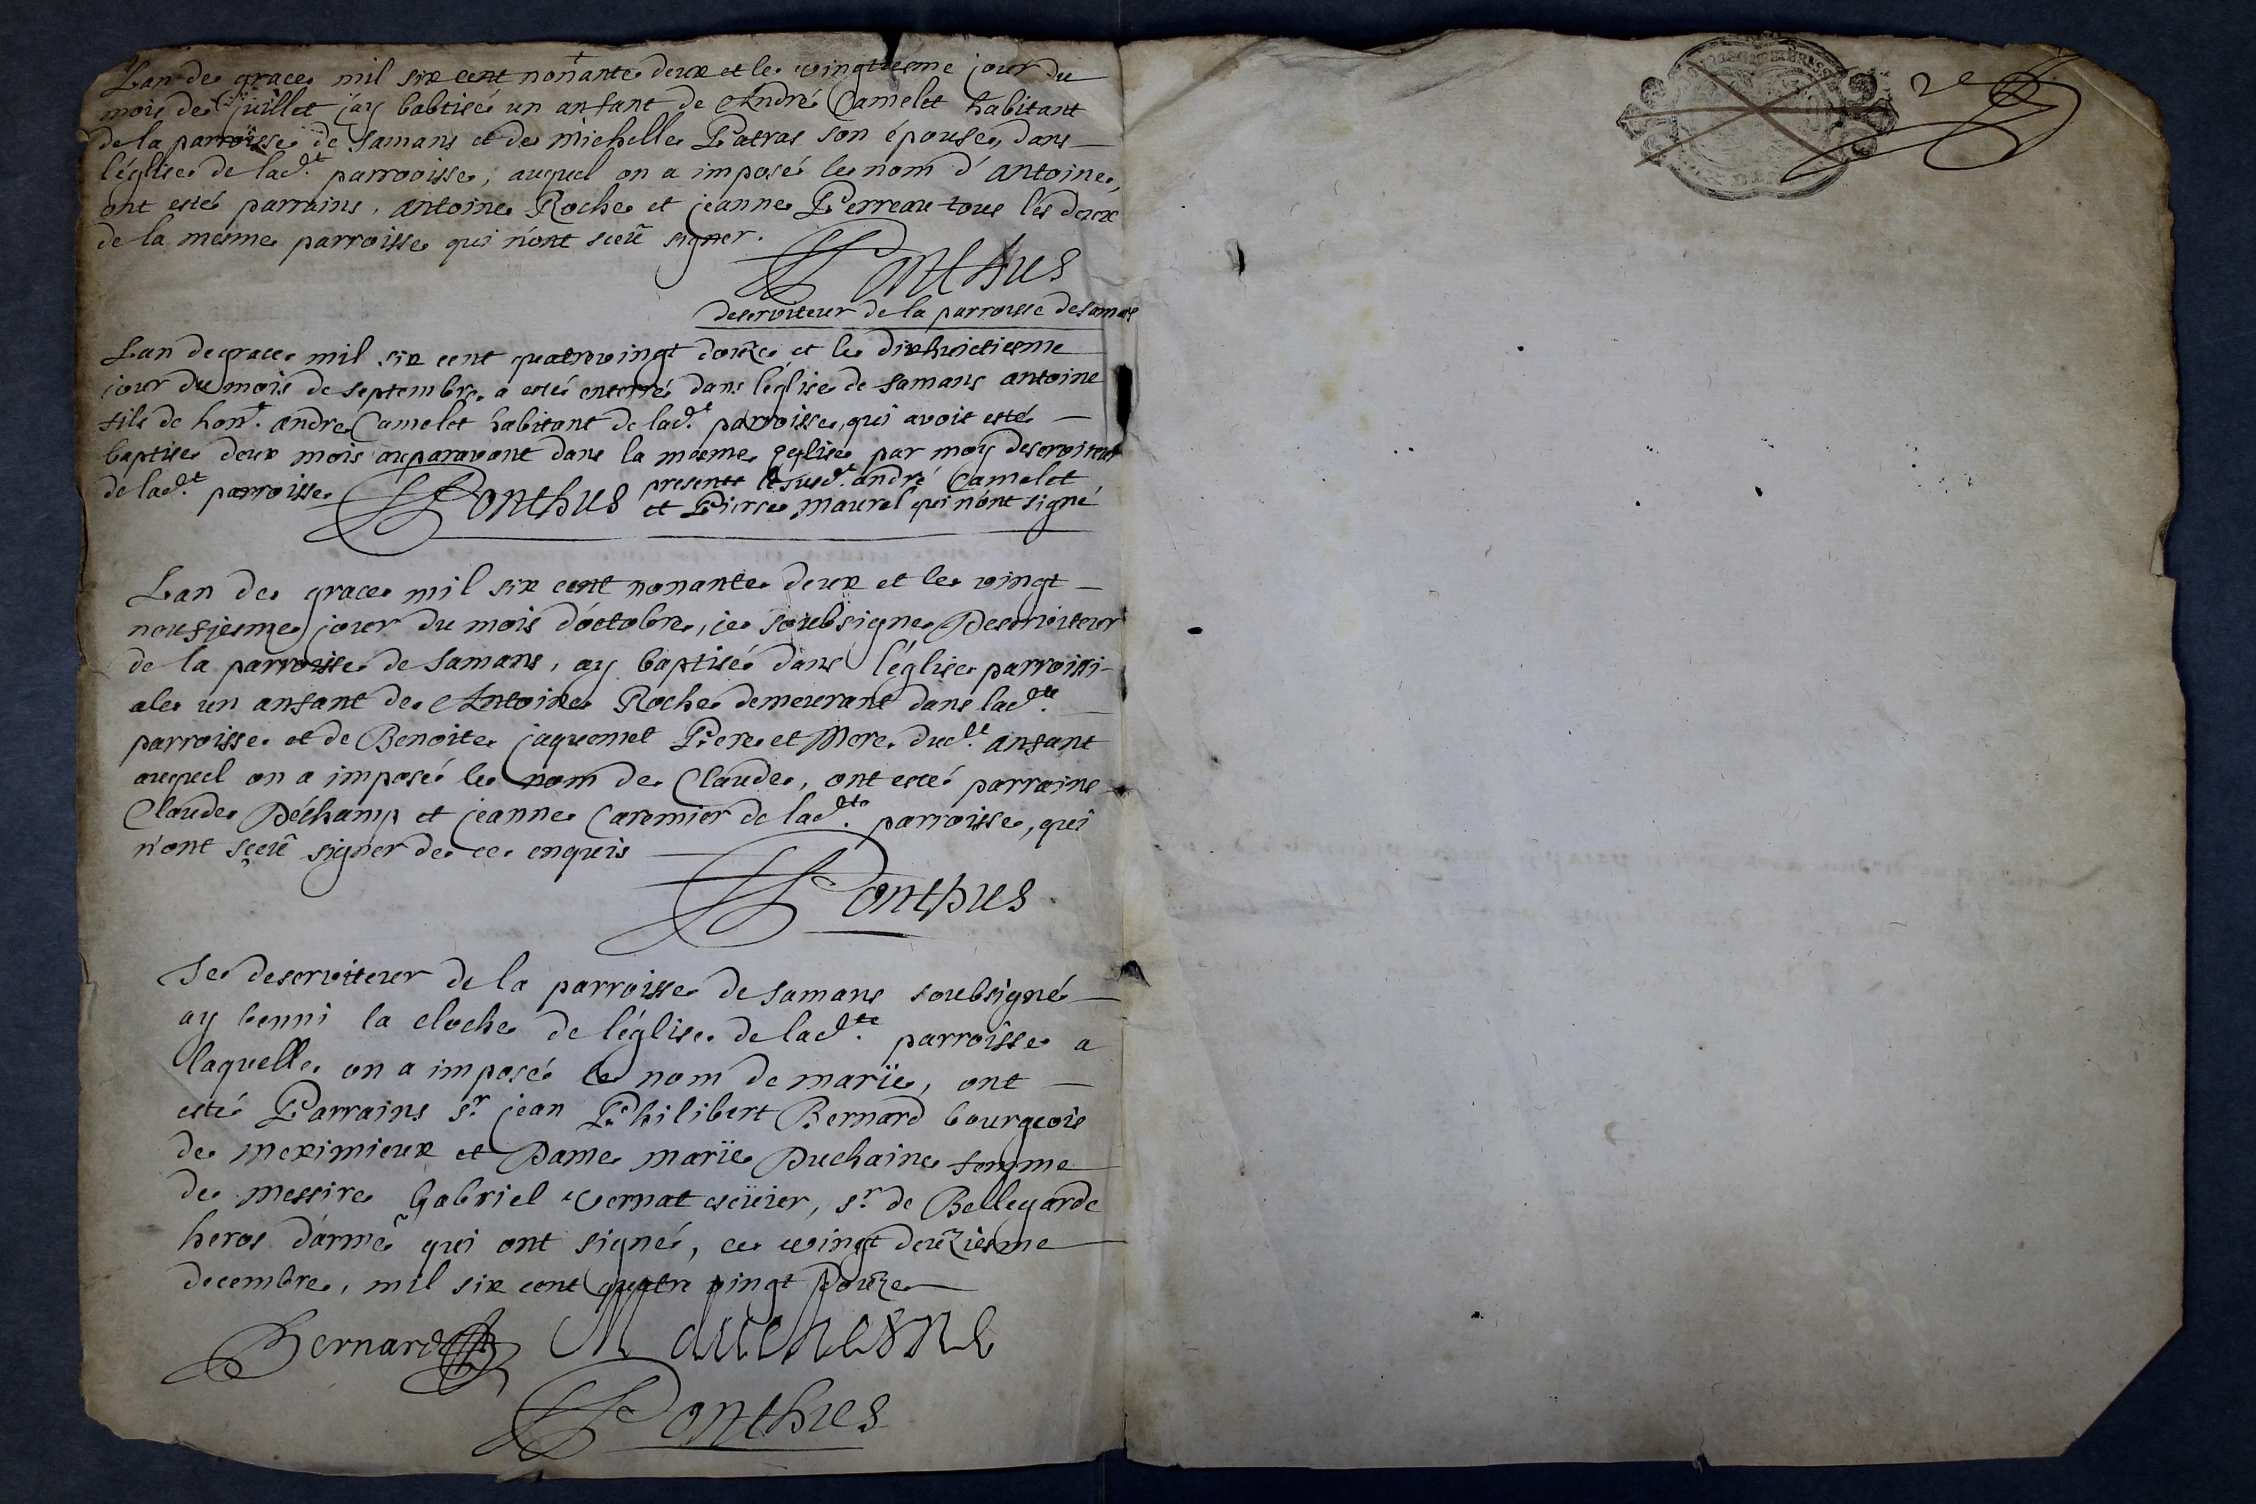 Lan de grace mil six cent nonante deux et le vingtiesme jour du
mois de juillet j'ay babtisé un anfant de André Camelet habitant
de la parroisse de samans et de michelle Patras son épouse, dans
l'église de lad.t parrooisse, auquel on a imposé le nom d'antoine,
ont esté parrains, antoine Roche et jeanne Perreau tous lés deux
de la mesme parroisse qui n'ont sceû signer.
Ponthus
deserviteur de la parroisse de samans
Lan de grace mil six cent quatrevingt douze et le dixhuictiesme
jour du mois de septembre a esté enterré dans l'église de samans antoine
fils de hon.t andre Camelet habitant de lad.t parroisse, qui avoit esté
baptise deux mois auparavant dans la mesme eglise par moy deserviteur
de lad.t parroisse Ponthus present le susd.t andré Camelet
et Pierre maurel qui n'ont signé
Lan de grace mil six cent nonante deux et le vingt
neufiesme jour du mois d'octobre, je soubsigne Deserviteur
de la parroisse de samans, ay baptisé dans l'église parroissi-
ale un anfant de Antoine Roche demeurant dans lad.te
parroisse et de Benoite jaquemet Pere et Mere dud.t anfant
auquel on a imposé le nom de Claude, ont esté parrains
Claude Déchamp et jeanne Caremier de lad.te parroisse, qui
n'ont sçeû signer de ce enquis
Ponthus
Je deserviteur de la parroisse de samans soubsigné
ay benni la cloche de l'église de lad.te parroisse a
laquelle on a imposé le nom de marïe, ont
esté Parrains s.r jean Philibert Bernard bourgeois
de meximieux et Dame marïe Duchaine femme
de messire Gabriel vernat escüier, s.r de Bellegarde
heros d'arme qui ont signé, ce vingt deuziesme
decembre, mil six cent quatre vingt douze
Bernard M duchesne
Ponthus
2e